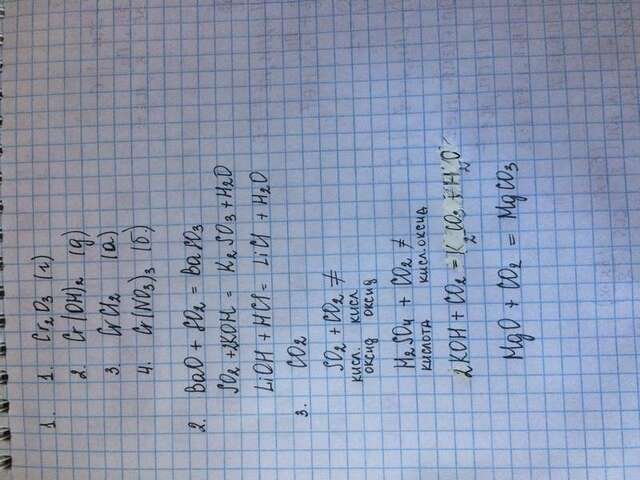 1. 1. Cr2O3 (г)
2. Cr(OH)2 (д)
3. CrCl2 (а)
4. Cr(NO3)3 (б)
2. BaO + SO2 = BaSO3
SO2 + 2KOH = K2SO3 + H2O
LiOH + HCl = LiCl + H2O
3. CO2
SO2 + CO2 ≠
кисл. кисл
оксид оксид
H2SO4 + CO2 ≠
кислота кисл. оксид
2KOH + CO2 = K2CO3 + H2O
MgO + CO2 = MgCO3